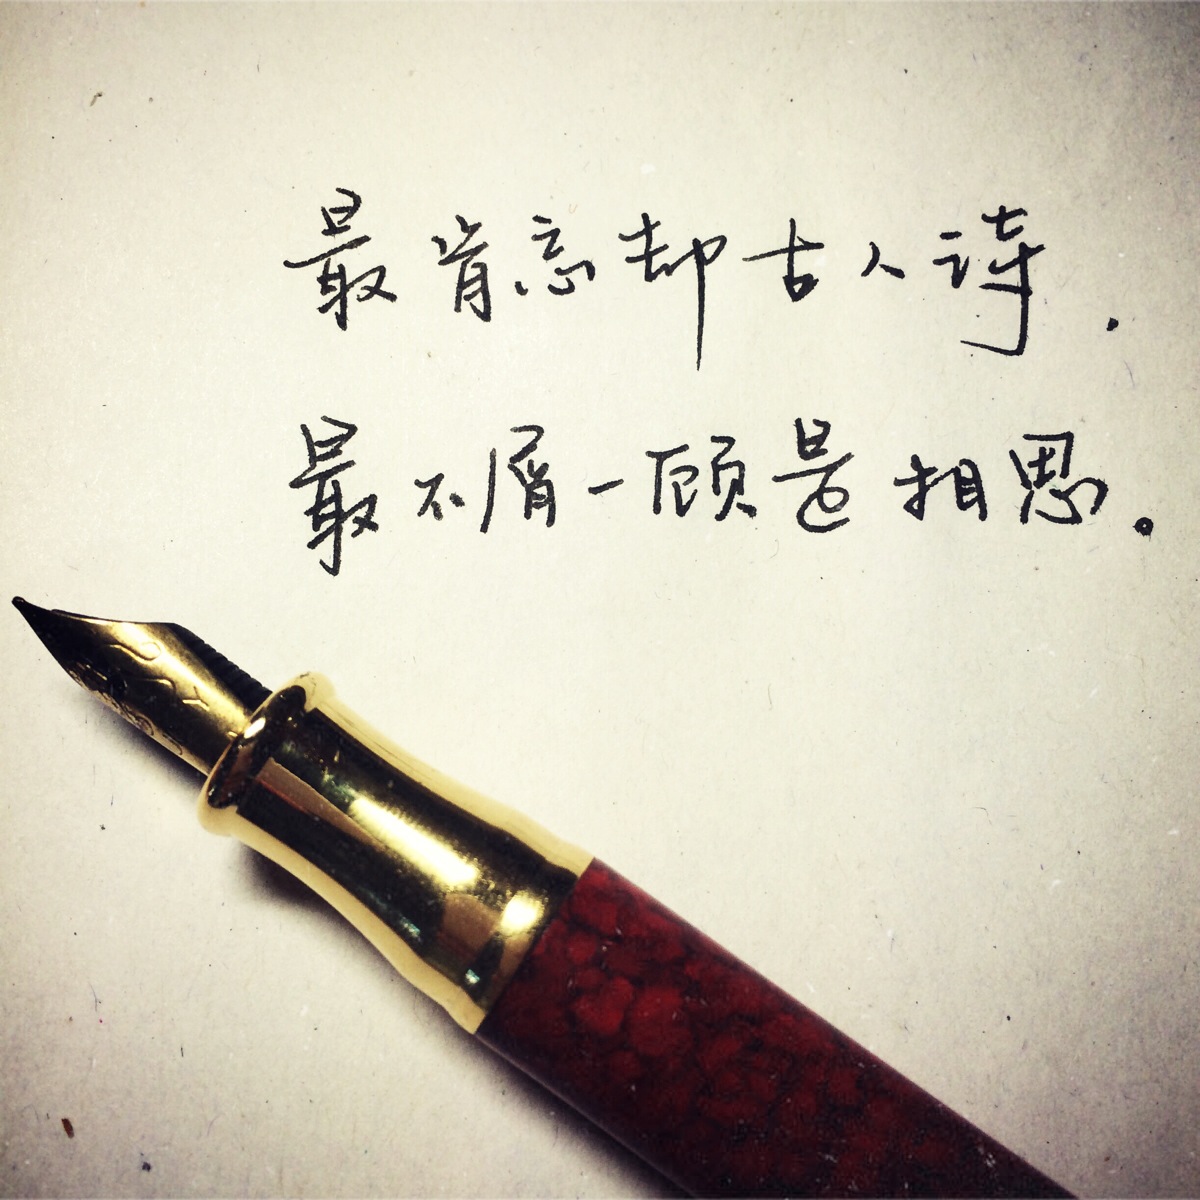 最肯忘却古人诗.
最不屑一顾是相思。